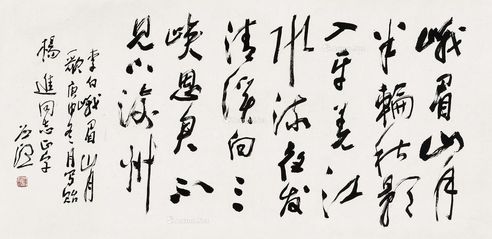 峨眉山月
半輪秋影
入平羌江
水流夜发
清溪向三
峡思君不
見下渝州
李白峨眉山月
歌庚申冬月写贻
楊進同志正字